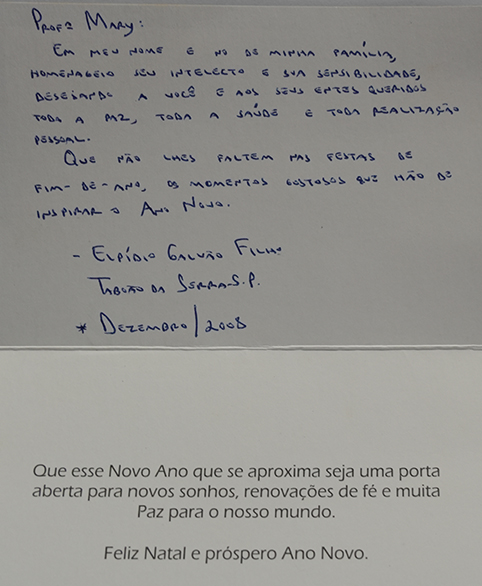 Profª Mary:
Em meu nome e no de minha família,
homenageio seu intelecto e sua sensibilidade,
desejando a você e aos seus entes queridos
toda a paz, toda a saúde e toda realização
pessoal.
Que não lhes faltem nas festas de
fim-de-ano, os momentos gostosos que hão de
inspirar o Ano Novo.
- Elpídio Galvão Filho
Taboão da Serra-S.P.
* Dezembro/2008
Que esse Novo Ano que se aproxima seja uma porta
aberta para novos sonhos, renovações de fé e muita
Paz para o nosso mundo.
Feliz Natal e próspero Ano Novo.